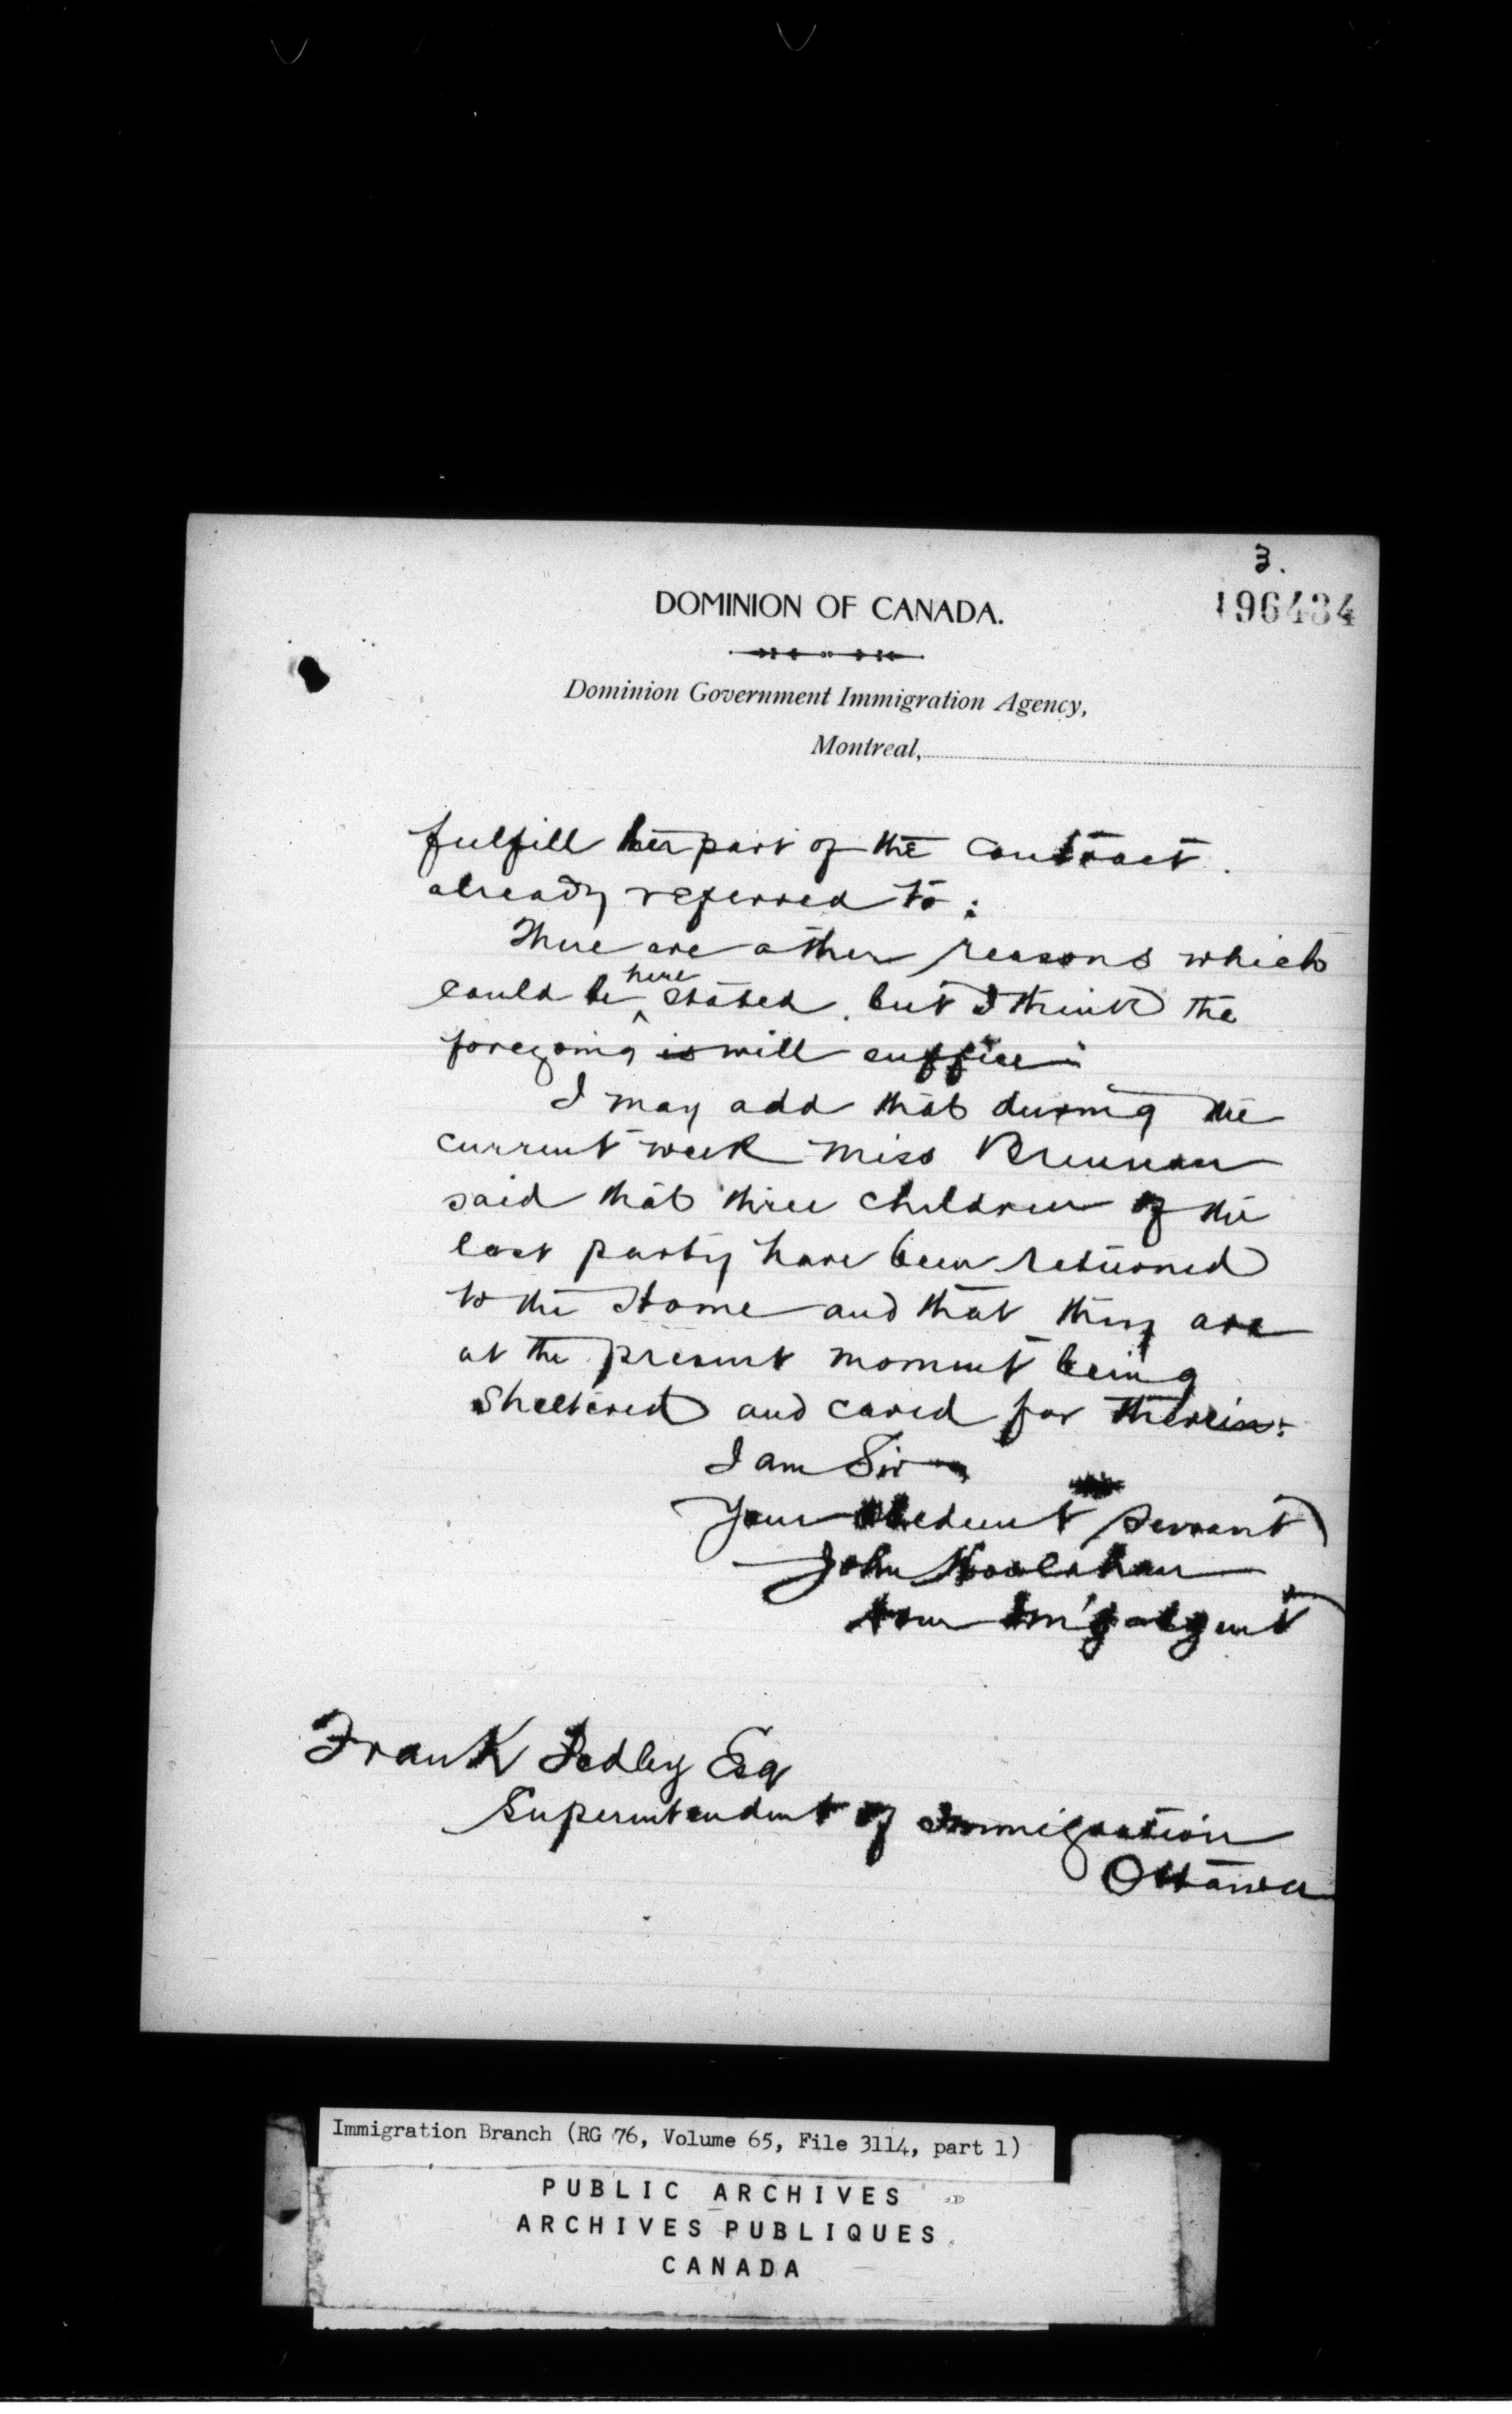 3.
196434
DOMINION OF CANADA.
Dominion Government Immigration Agency,
Montreal,
fulfill her part of the contract.
already referred to:
There are other reasons which
here
could be ^ stated. but I think the
foregoing is will suffice:
I may add that during the
current week Miss Brennan
said that three children of the
last party have been returned
to the Home and that they are
at the present moment being
Sheltered and cared for therein:
I am Sir
Your obedient servant
John Hoolahan
Dom Im'g Agent
Frank Pedley Esq
Superintendent of Immigration
Ottawa
Immigration Branch (RG 76, Volume 65, File 3114, part 1)
PUBLIC ARCHIVES
ARCHIVES PUBLIQUES
CANADA